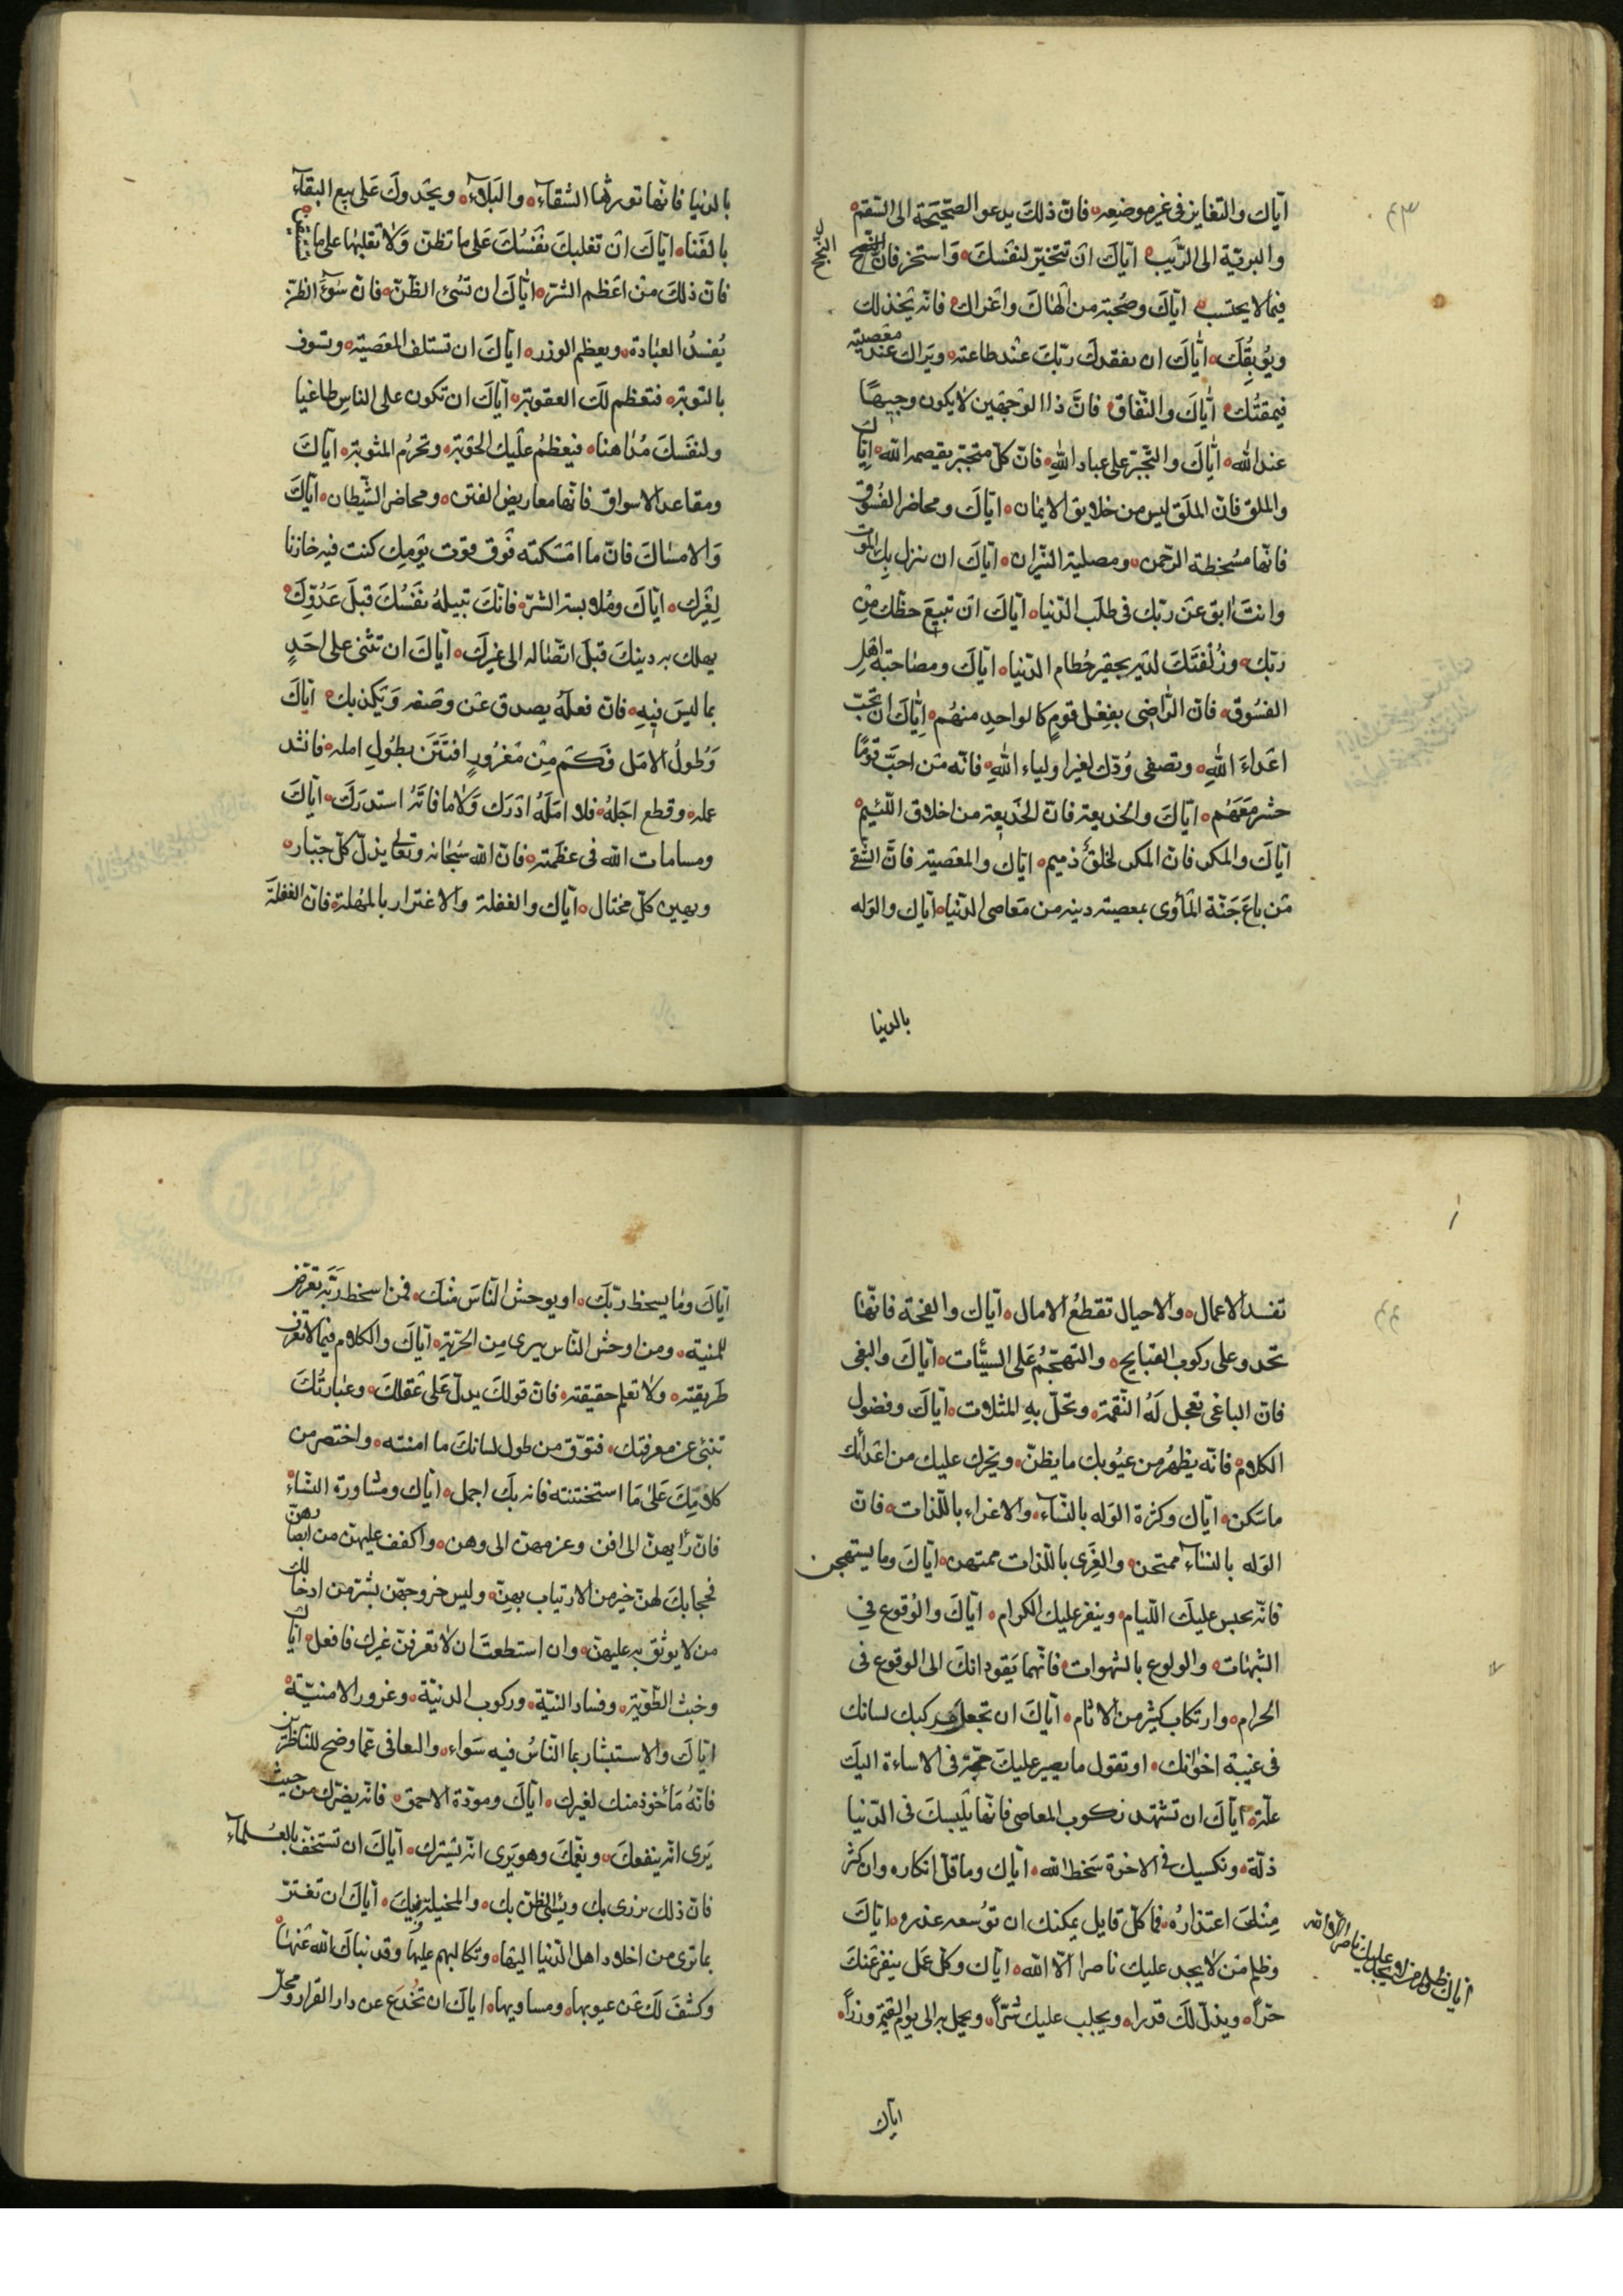 ۴۳
ايّاك والتغاير فى غير موضعه فانّ ذلك يدعو الصّحيحة الى السّقم
والبريّة الى الرّيب ايّاك ان تتخيّر لنفسك واستخر فانّ النّجح
النّجح
فيما لا يحتسب ايّاك وصُحبة من الهاك واغراك فانّه يخذلك
ويُوبِقُك ايّاك ان يفقدك ربّك عند طاعته ويراك عند معصيته
فيمقتُك ايّاك والنّفاق فانّ ذا الوجهين لا يكون وجيهًا
عند الله ايّاك والتّجبّر على عباد الله فانّ كلّ متجبّر يقصمه الله ايّاك
والملق فانّ الملَق ليس من خلايق الايمان ايّاك ومحاضر الفُسُوق
فانّها مسُخطة الرّحمن ومصلية النّيران ايّاك ان ينزل بك الموت
وانتَ ابق عن ربّك فى طلَب الدّنيا ايّاك ان تبيعَ حظّك مِن
ربّك وزُلفتَكَ لديه بحقير حُطام الدّنيا ايّاك ومصاحبة اهل
الفسُوق فانّ الرّاضى بفعل قوم كالواحد منهُم ايّاك ان تحبّ
اعداءَ الله وتصفى وُدّك لغير اولياء الله فانّه من احبّ قومًا
حشر مَعَهُم ايّاك والخديعة فانّ الخديعة من اخلاق اللّئيم
ايّاك والمكر فانّ المكر لخلق ذميم ايّاك والمعصية فانّ الشّقى
مَن باعَ جنّة المأوى بمعصية دينه من معاصى الدّنيا ايّاك والوله
بالدنيا
بالدنيا فانّها تورثها الشقآء والبَلاء ويحدوكَ على بيع البقآء
بالفَنا ايّاكَ ان تغلبكَ نفسُكَ على ما تظنّ وَلا تغلبها على ما
فانّ ذلكَ من اعَظم الشّرّ ايّاكَ ان تسُئ الظّنّ فانّ سُوءَ الظنّ
يُفسدُ العبَادة ويعظم الوزر ايّاكَ ان تستلف المعَصية وتسوف
بالتوبة فتعظم لَك العقوبة ايّاكَ ان تكون على الناس طاغيا
ولنفَسكَ مُداهنا فيعظمُ علَيك الحَوبة وتحرُم المثوبة ايّاكَ
ومقاعد الاسواق فانّها معاريض الفتن ومحاضر الشّيطان ايّاكَ
وَالامسَاكَ فانّ ما امسَكته فَوق قوت يَومِك كنت فيه خازنا
لِغَيرك ايّاكَ ومُلابسة الشرّ فانّكَ تبيلهُ نفسُك قبلَ عَدُوّكَ
يهلك به دينكَ قبلَ اتّصاله الى غيركَ ايّاكَ ان تثنى على احَدٍ
بما ليسَ فيهِ فانّ فعلَهُ يصدق عَن وصَفه وَيكذبك ايّاكَ
وَطُولُ الامَل فكَم مِن مَغرُورٍ افتَتَنَ بطُولِ امله فافسد
عمله وقطع اجَلهُ فلا امَلَهُ ادَرك وَلا ما فاتَهُ استدرَكَ ايّاكَ
ومسامات الله فى عظَمتهِ فانّ الله سُبحَانه وتعالى يذلّ كلّ جبّار
ويهين كلّ مختال ايّاك والغفلة والاغترار بالمُهلة فانّ الغفلة
۴۴
تفسد الاعمال والاجال تقطعُ الامال ايّاك والقحّة فانّها
تحدو على ركوب القبايح والتهجّمُ عَلى السيّئات ايّاكَ والبغى
فانّ الباغى تعجل لَهُ النّقمة وتحلّ بهِ المثلات ايّاكَ وفضول
الكلام فانّه يظهرُ من عيُوبك ما بطنّ ويحرك عليك من اعَدائك
ما سَكن ايّاك وكثرة الوَله بالنسَّاء والاغراء باللّذات فانّ
الوَله بالنسَاء ممتحن والغِرَى باللّذات ممتهن ايّاكَ وما يستهجن
فانّه يحبس عليكَ اللّيام وينفر عليك الكرام ايّاكَ والوُقوع فى
الشبهات والولوع بالشهوات فانّهما يَقودانكَ الى الوقوع فى
الحرام وارتكاب كثير من الاثام ايّاكَ ان تجعل مركبك لسانك
فى غيبة اخوانك او تقول ما يصير عليكَ حجّة فى الاساءة اليكَ
علّة ايّاكَ ان تستهد ركوب المعاصى فانّها يلُبسكَ فى الدّنيا
ذلّة وتكسيك فى الاخرة سَخط الله ايّاك وما قلّ انكاره وان كثر
مِنكَ اعتذارُهُ فما كلّ قايل يمكنك ان توُسعه عذره ايّاكَ
وظلم مَن لا يجد عليك ناصرا الّا الله ايّاك وكلّ عمَل ينفر عَنكَ
حرّاً ويذلّ لكَ قدرا ويجلب عليك شرّاً ويحمل به الى يوم القيمة وزراً
اياك وظلم من لا يجد عليك ناصرا الا الله
اياك
ايّاكَ ومَا يسخط ربّكَ او يوحش النّاسَ منكَ فمن اسخط ربَّه تعرّض
للمنية ومن اوحش النّاس يبرى مِن الحُرّية ايّاكَ والكلام فيما لا تعَرف
طَريقته ولا تعلم حقيقته فانّ قولكَ يدلّ عَلى عَقلك وعبَارتُكَ
تنبئ عن معرفتك فتوّق من طول لسانكَ ما امنته واختصر من
كلامِكَ عَلى مَا استحسنته فانه بكَ اجمل ايّاك ومشاورة النسَّاء
فانّ رأيهنّ الى افن وعزمهنّ الى وهن واكفف عليهنّ من ابصارهنّ
فحجابكَ لهنّ خير من الارتياب بهنّ وليس خروجهنّ بشرّ من ادخالك
من لا يوثق به عليهنّ وان استطعتَ ان لا تعرفنّ غيرك فافعل ايّاك
وخبث الطّويّة وفساد النيّة وركوب الدنيّة وغرور الامنيّة
ايّاكَ والاستيشار بما الناسُ فيه سَواء والتعافى عمّا وضح للنّاظرين
فانّهُ مَأخوذ منك لغيرك ايّاكَ ومودّة الاحمق فانّه يضرّك من حيث
يَرى انّه ينفعكَ ويغمّكَ وهو يَرى انّه يسَرك ايّاكَ ان تستخفّ بالعُلمآء
فانّ ذلك يزرى بك ويسئ الظنّ بك والمخيلة فيكَ ايّاكَ ان تغترّ
بما ترى من اخلاد اهل الدّنيا اليهَا وتكالبهم عليها وقد نباك الله عَنهَا
وكشفَ لَكَ عَن عيوبها ومساويها ايّاكَ ان تخُدَع عن دار القرار ومحلّ